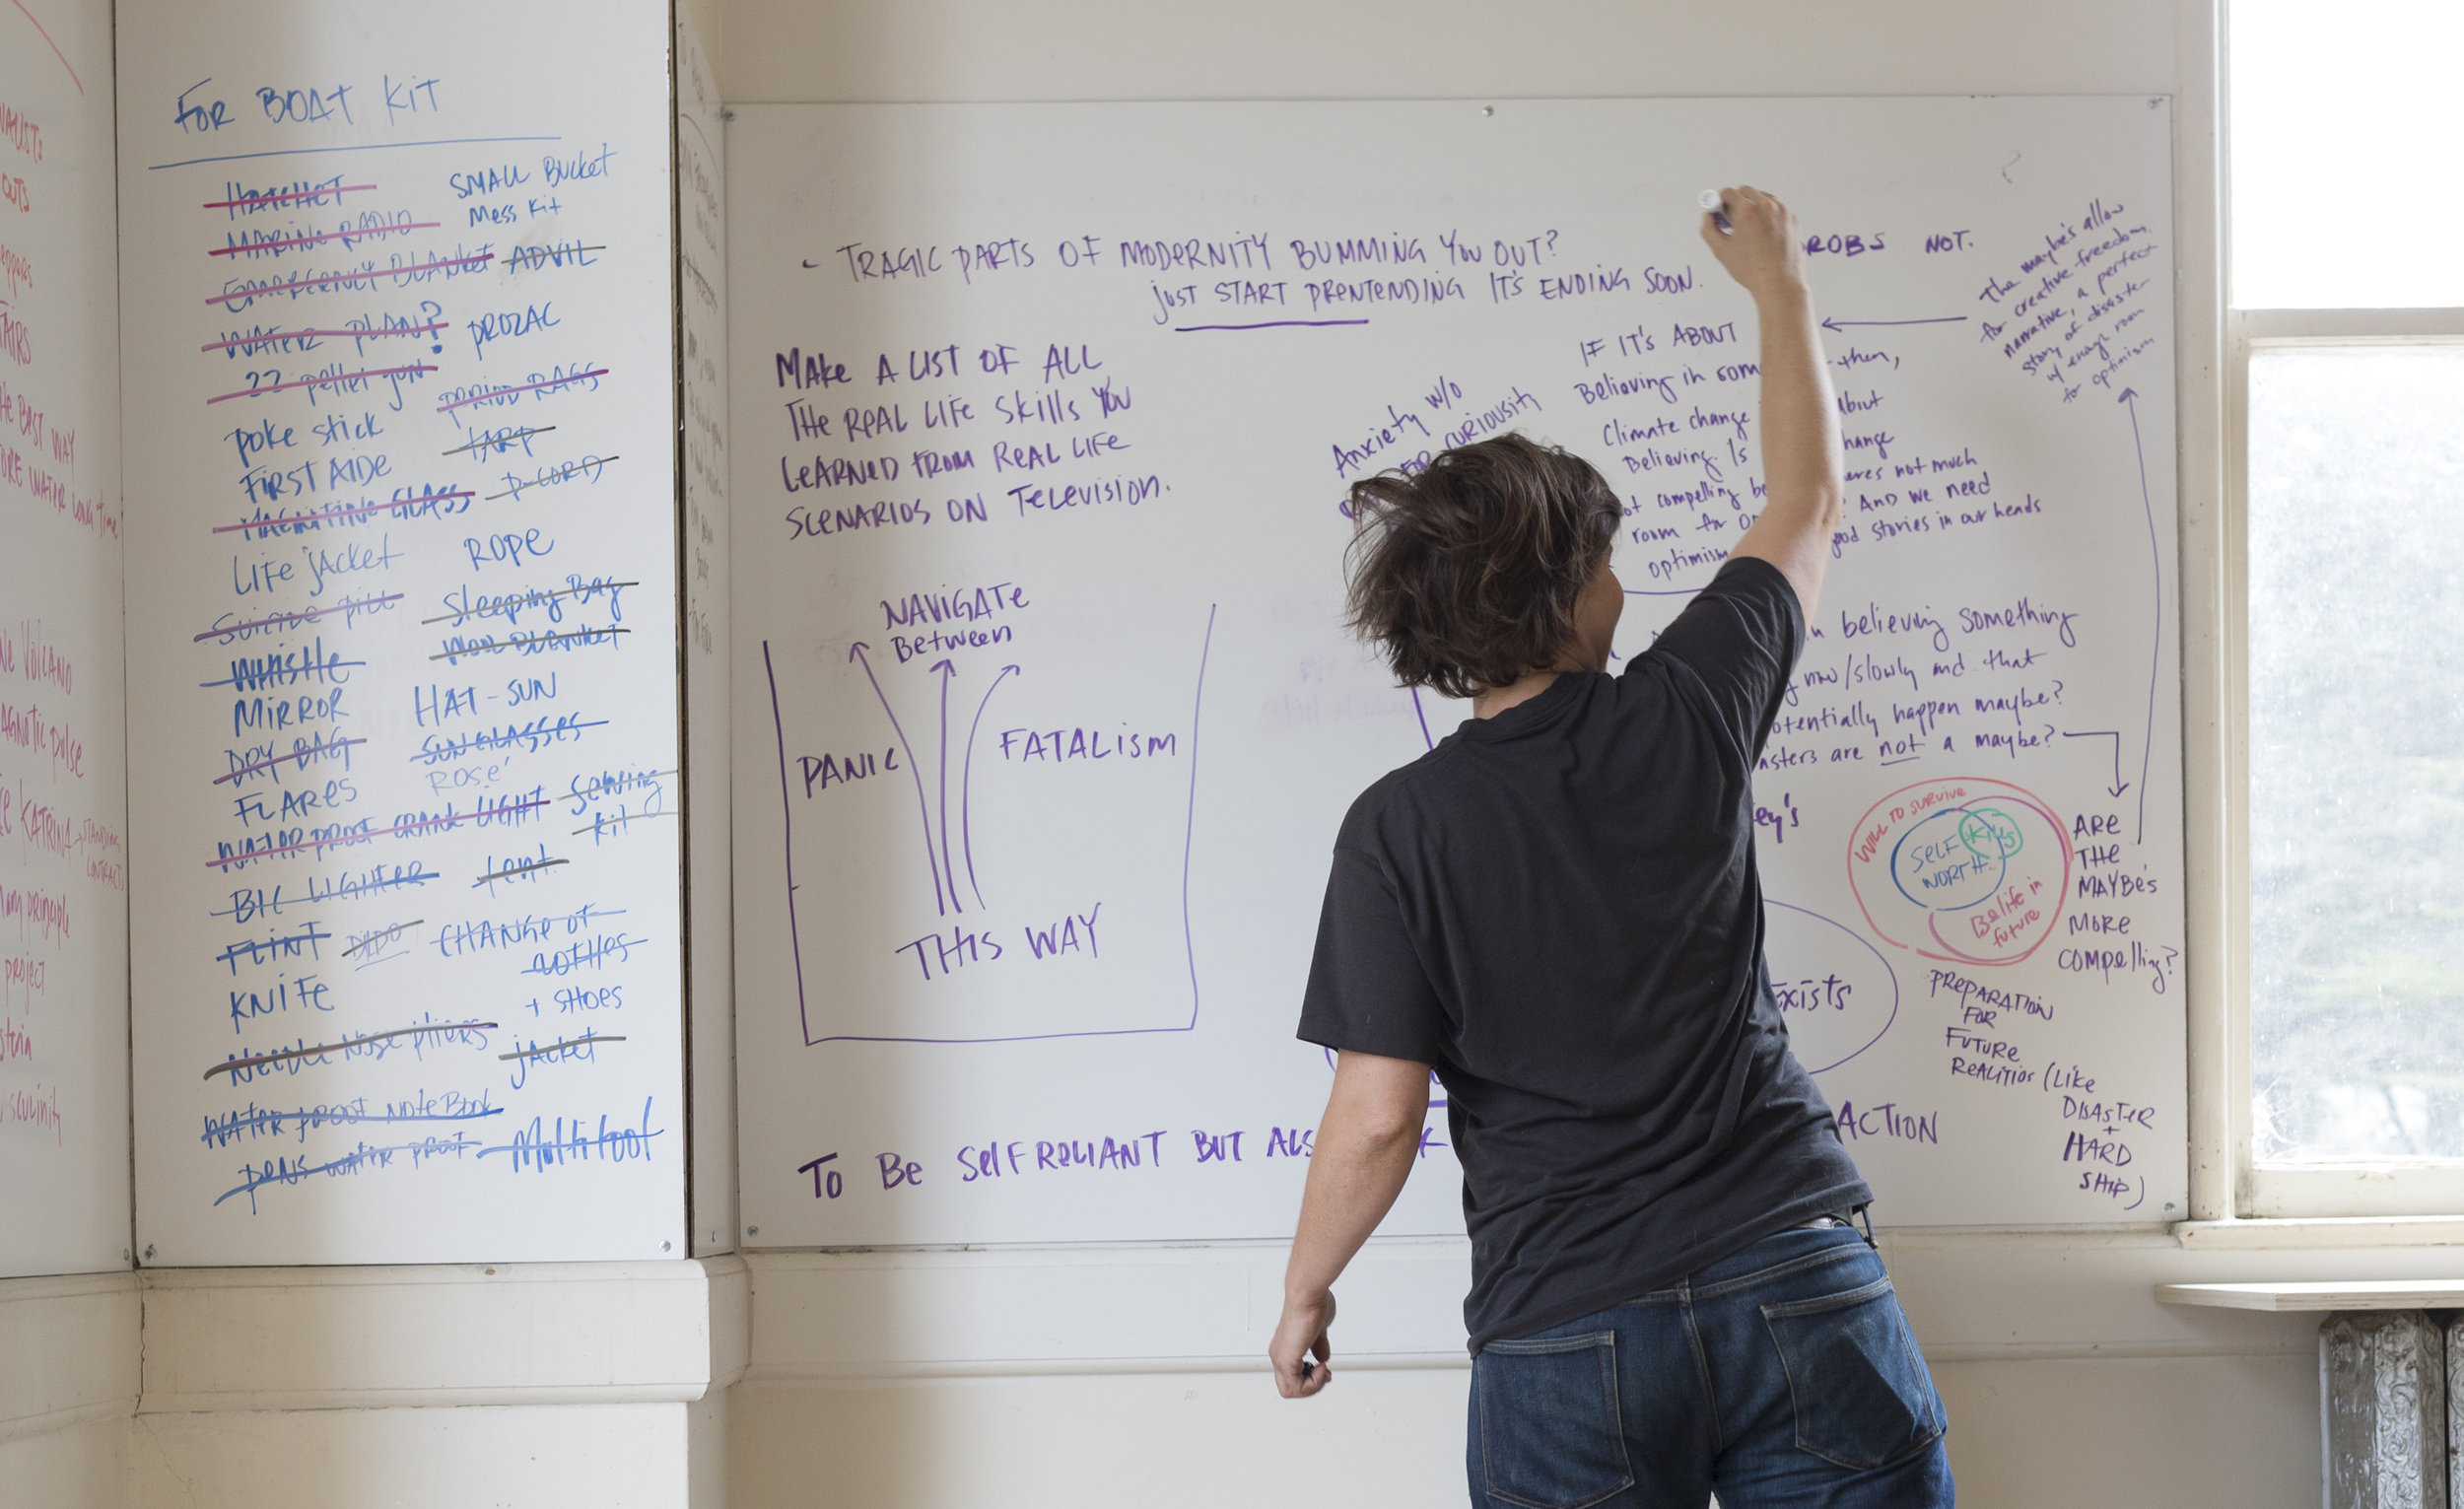 FOR BOAT KIT
HATCHET
MARINE RADIO
EMERGENCY BLANKET
WATER PLAN?
22 pellet gun
poke stick
FIRST AIDE
LIFE jACKET
Suicide pill
WHISTLE
MIRROR
DRY BAG
FLARES
WATERPROOF CRANK LIGHT
BIC LIGHTER
FLINT
DILDO
KNIFE
Needle Nose pliers
WATER PROOF NOTEBOOK
PENS WATER PROOF
SMALL BUCKET
Mess Kit
ADVIL
PROZAC
PERIOD RAGS
TARP
P-CORD
ROPE
Sleeping Bag
BLANKET
HAT - SUN
SUNGLASSES
ROSE'
Sewing
kit
tent
CHANGE OF
CLOTHES
+ SHOES
jACKET
Multitool
- TRAGIC PARTS OF MODERNITY BUMMING YOU OUT?
just START PRENTENDING IT'S ENDING SOON.
ROBS NOT.
?
The maybe's allow
for creative freedom,
narrative, a perfect
story of disaster
w/ enough room
for optimism
MAKE A LIST OF ALL
THE REAL LIFE SKILLS YOU
LEARNED FROM REAL LIFE
SCENARIOS ON TELEVISION.
Anxiety w/o
FOR CURIOUSITY
IF IT'S ABOUT
Believing in som then,
Climate change About
Believing. Is hange
ot compelling be eres not much
room for And we need
optimism ood stories in our heads
believing something
now/slowly and that
otentially happen maybe?
sters are not a maybe?
NAVIGATE
Between
PANIC
FATALISM
THIS WAY
ey's
WILL TO SURVIVE
SELF
WORTH
Kiys
Belife in
future
ARE
THE
MAYBE'S
MORE
COMPELLING?
xists
PREPARATION
FOR
FUTURE
REALITIES (LIKE
DISASTER
+
HARD
SHIP)
TO BE SELF RELIANT BUT ALS
ACTION
OUTS
HE BEST WAY
WATER LONG time
VOLCANO
AGNETIC pulse
KATRINA
project